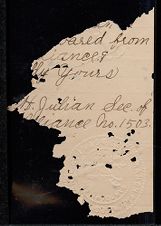 ared from
iance?
ly Yours
Julian Sec. of
lliance No. 1503.